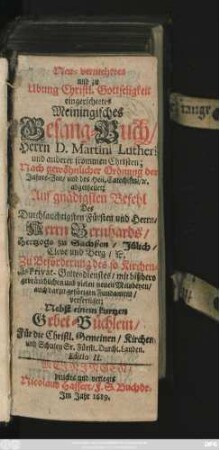 Neu-vermehrtes
und zu
Übung Christl. Gottseligkeit
eingerichtetes
Meiningisches
Gesang-Buch/
Herrn D. Martini Lutheri
und anderer frommen Christen;
Nach gewöhnlicher Ordnung der
Jahrs-Zeit/ und des Heil. Catechismi/ ꝛc.
abgetheilet;
Auf gnädigsten Befehl
Des
Durchlauchtigsten Fürsten und Herrn/
Herrn Bernhards/
Hertzogs zu Sachsen/ Jülich/
Cleve und Berg/ ꝛc.
Zu Beförderung des so Kirchen-
als Privat-Gottesdienstes/ mit bißhero
gebräuchlichen und vielen neuen Melodeyen/
auch darzu gehörigen Fundament/
verfertiget;
Nebst einem kurtzen
Gebet-Büchlein/
Für die Christl. Gemeinen/ Kirchen
und Schulen Sr. Fürstl. Durchl. Landen.
Editio II.
MEININGEN/
druckts und verlegts
Nicolaus Hassert/ F. S. Buchdr.
Im Jahr